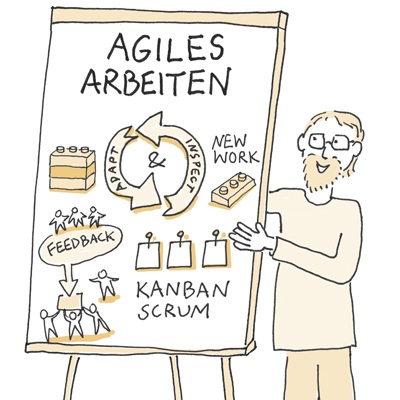 AGILES
ARBEITEN
ADAPT
&
INSPECT
NEW
WORK
FEEDBACK
KANBAN
SCRUM